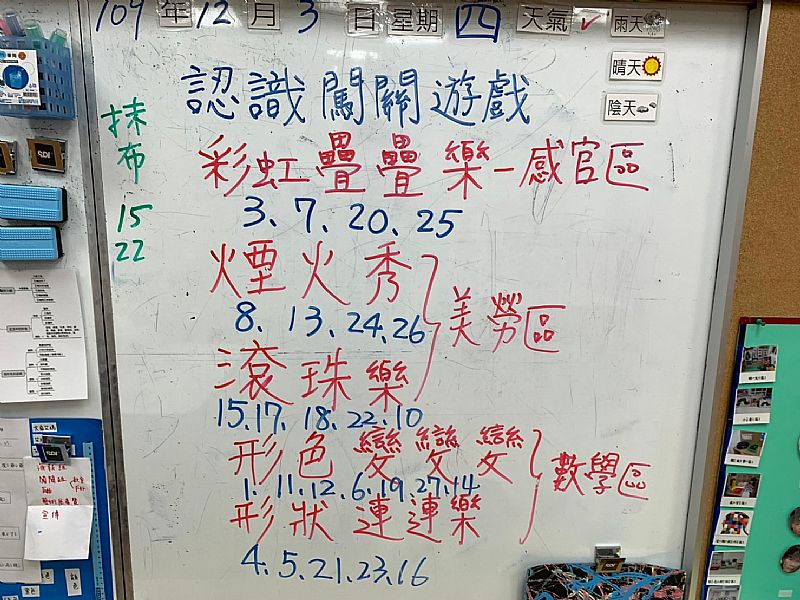 109年12月3日星期四天氣✓雨天
晴天
陰天
認識闖關遊戲
抹布
15
22
彩虹疊疊樂-感官區
3、7、20、25
煙火秀
8、13、24、26
美勞區
滾珠樂
15、17、18、22、10
形色變變變
1、11、12、6、19、27、14
數學區
形狀連連樂
4、5、21、23、16